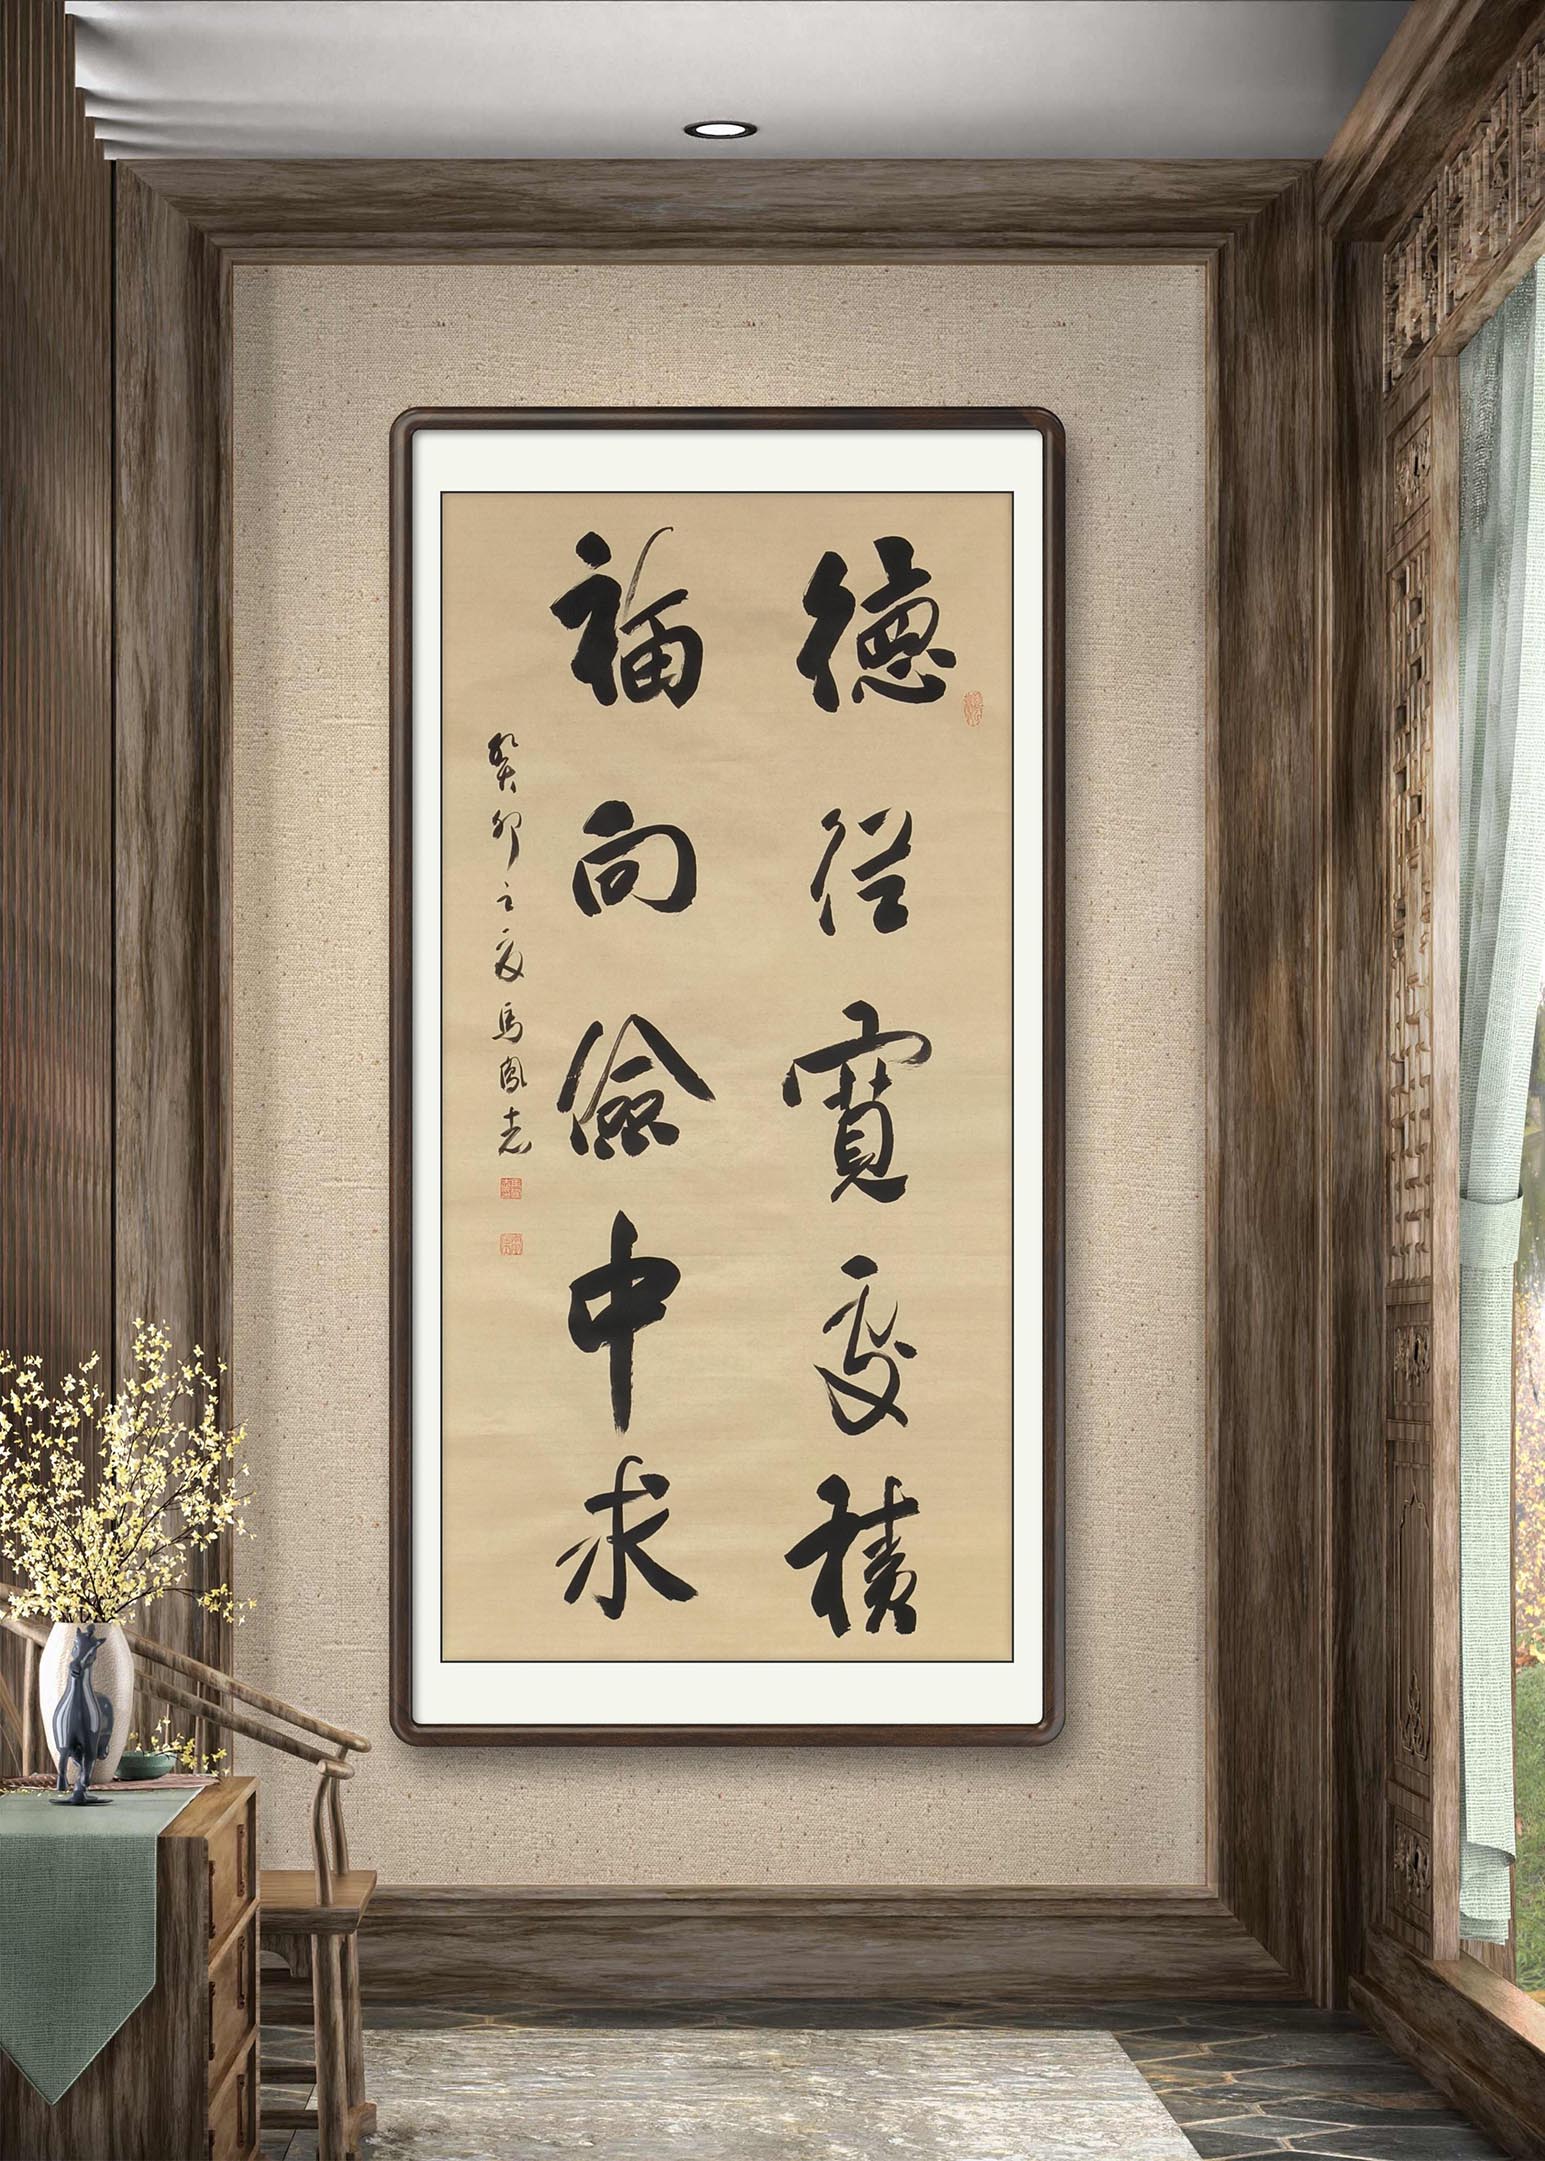 德從寬處積
福向儉中求
癸卯之夏馬鳳志